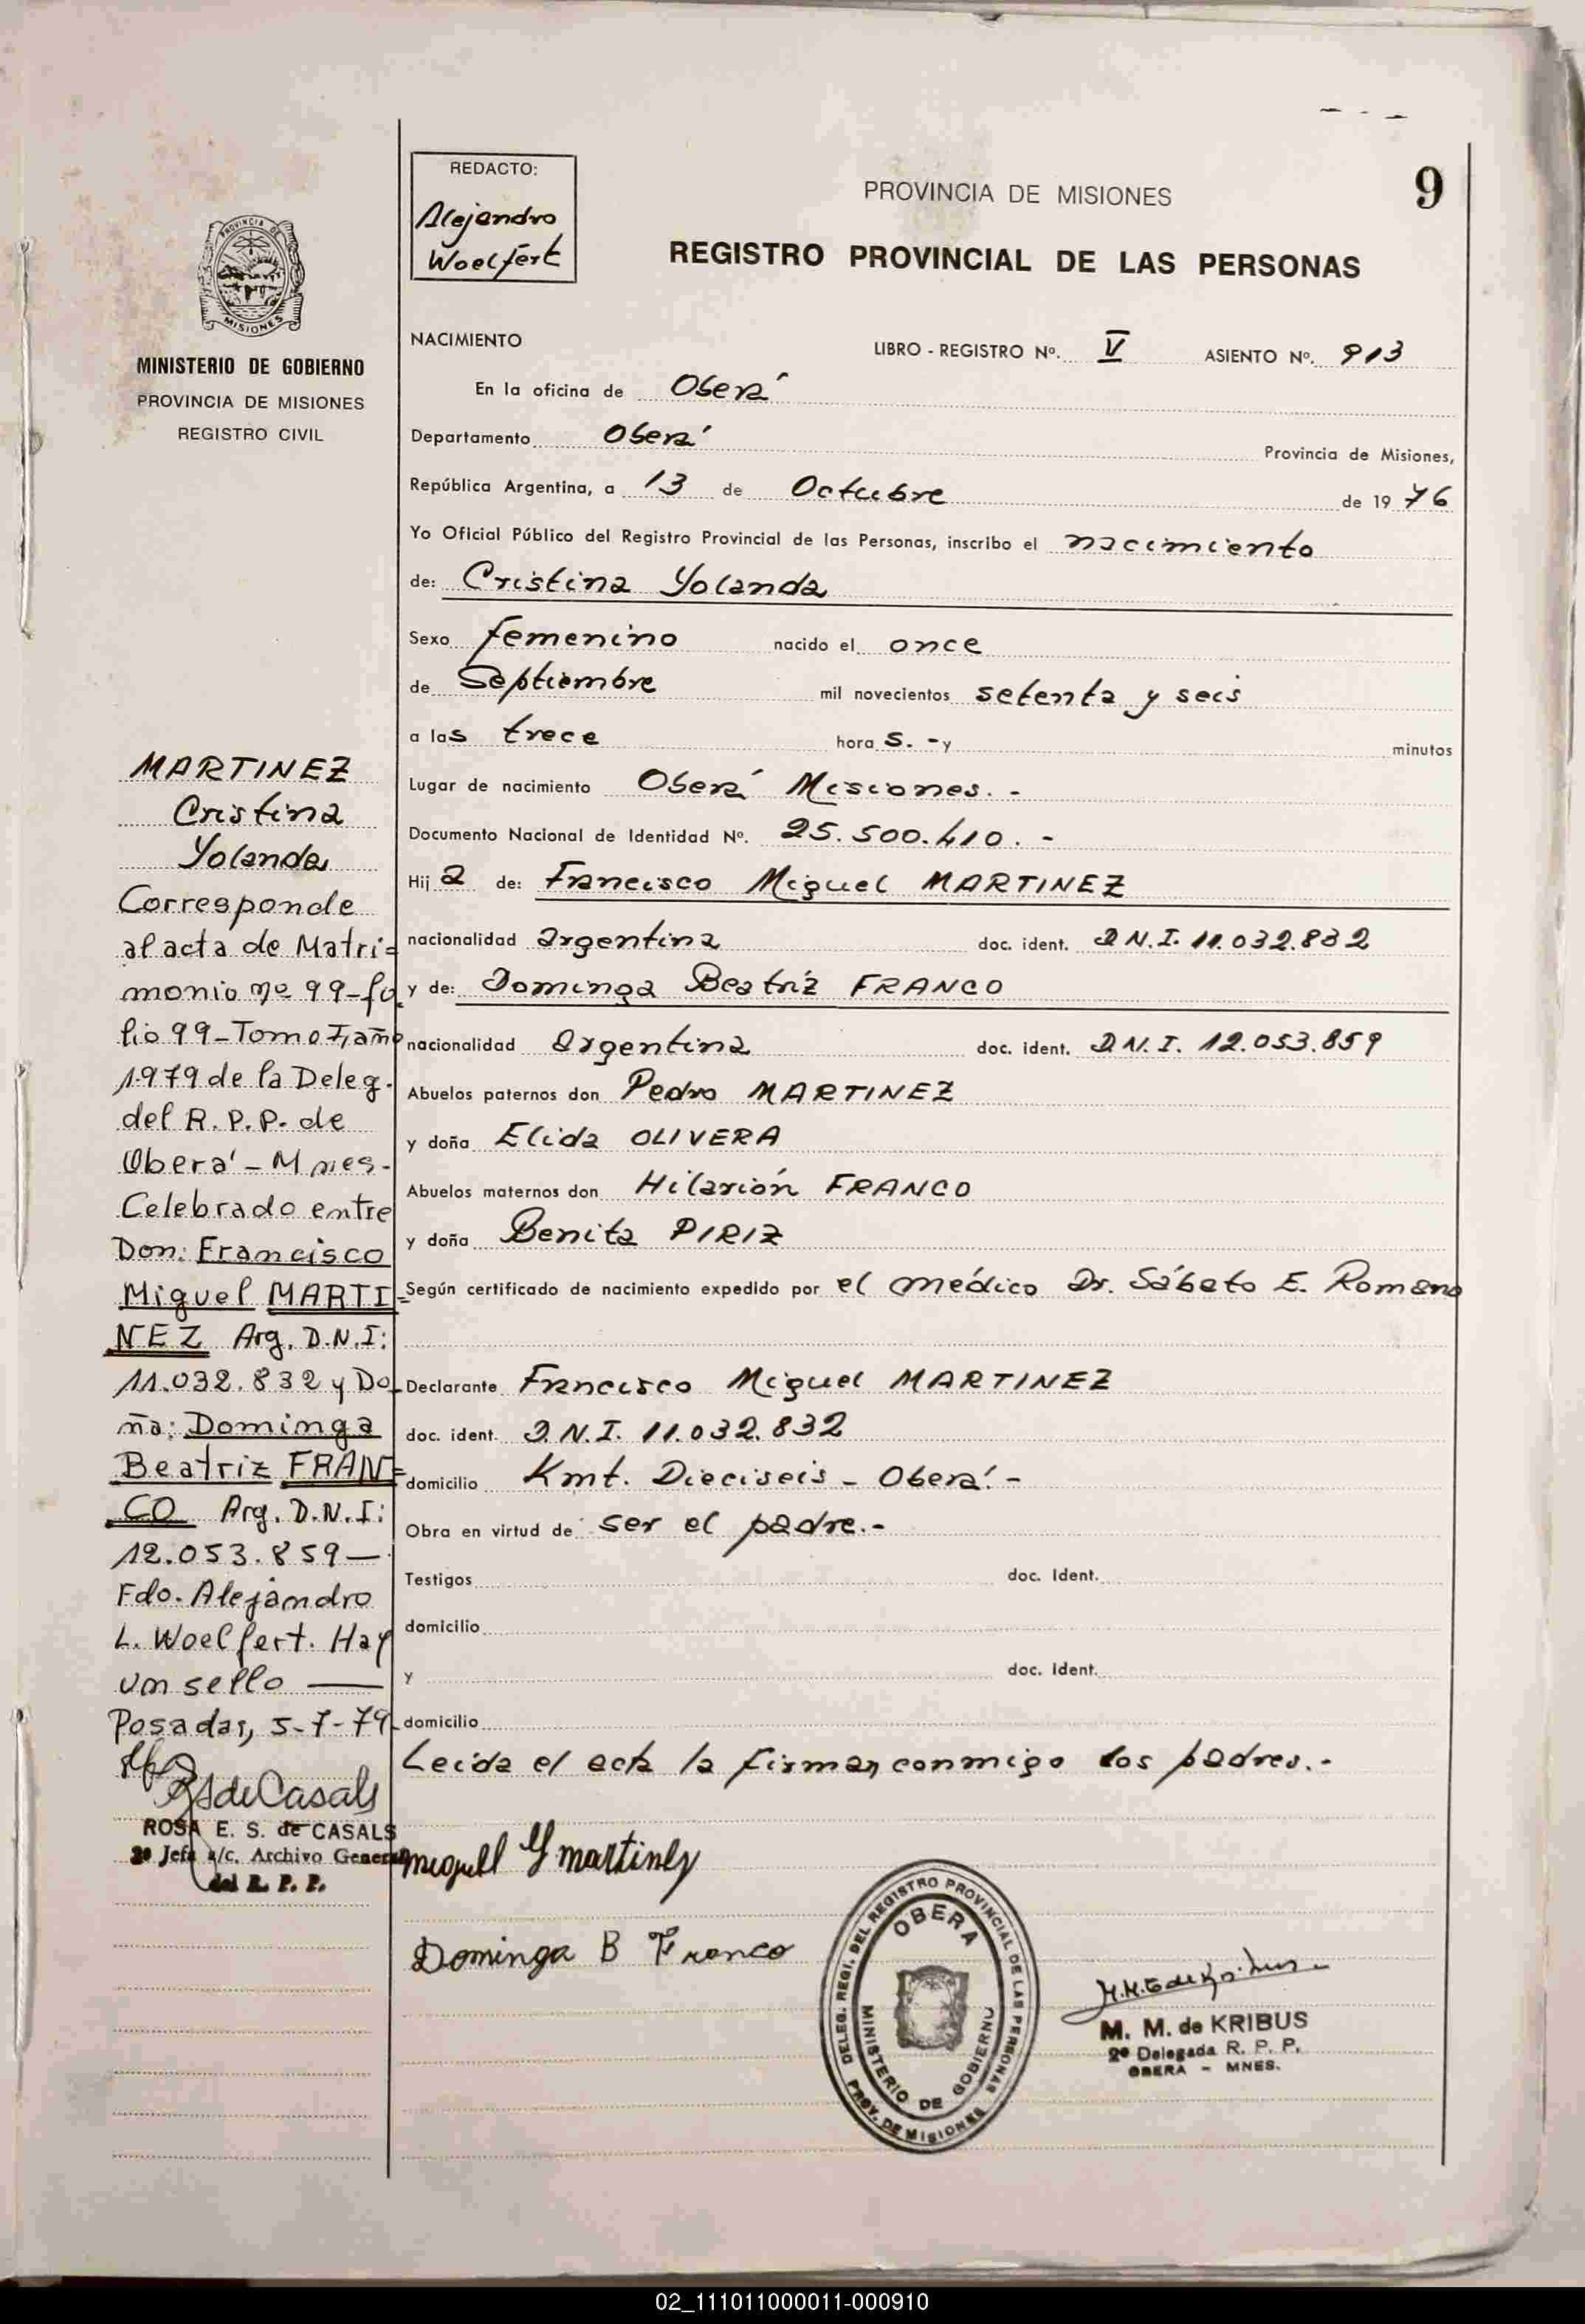 REDACTO:
Alejandro
Woelfert
PROVINCIA DE MISIONES
9
REGISTRO PROVINCIAL DE LAS PERSONAS
PROVINCIA DE
MISIONES
MINISTERIO DE GOBIERNO
PROVINCIA DE MISIONES
REGISTRO CIVIL
MARTINEZ
Cristina
Yolanda
Corresponde
al acta de Matri=
monio nº 99-fo
lio 99-Tomo I, año
1979 de la Deleg.
del R. P. P. de
Oberá - Mnes-
Celebrado entre
Don: Francisco
Miguel MARTI=
NEZ Arg. D.N.I:
11.032.832 y Do
ña: Dominga
Beatriz FRAN=
CO Arg. D.N.I:
12.053.859—
Fdo. Alejandro
L. Woelfert. Hay
un sello —
Posadas, 5-7-79
RSdeCasals
ROSA E. S. de CASALS
2º Jefa a/c. Archivo General
del R. P. P.
NACIMIENTO
LIBRO - REGISTRO Nº. V ASIENTO Nº. 913
En la oficina de Oberá
Departamento Oberá Provincia de Misiones,
República Argentina, a 13 de Octubre de 19 76
Yo Oficial Público del Registro Provincial de las Personas, inscribo el nacimiento
de: Cristina Yolanda
Sexo femenino nacido el once
de Septiembre mil novecientos setenta y seis
a las trece hora s. - y minutos
Lugar de nacimiento Oberá Misiones. -
Documento Nacional de Identidad Nº. 25.500.410. -
Hij a de: Francisco Miguel MARTINEZ
nacionalidad argentina doc. ident. D.N.I. 11.032.832
y de: Dominga Beatríz FRANCO
nacionalidad argentina doc. ident. D.N.I. 12.053.859
Abuelos paternos don Pedro MARTINEZ
y doña Elida OLIVERA
Abuelos maternos don Hilarión FRANCO
y doña Benita PIRIZ
Según certificado de nacimiento expedido por el médico Dr. Sábato E. Romano
Declarante Francisco Miguel MARTINEZ
doc. ident. D.N.I. 11.032.832
domicilio Kmt. Dieciseis - Oberá. -
Obra en virtud de ser el padre. -
Testigos doc. Ident.
domicilio
y doc. Ident.
domicilio
Leída el acta la firman conmigo los padres. -
miguel martinez
Dominga B Franco
DELEG. REGI. DEL REGISTRO PROVINCIAL DE LAS PERSONAS
OBERA
MINISTERIO DE GOBIERNO
PROV. DE MISIONES
M. M. de KRIBUS
2º Delegada R. P. P.
OBERA - MNES.
02_111011000011-000910